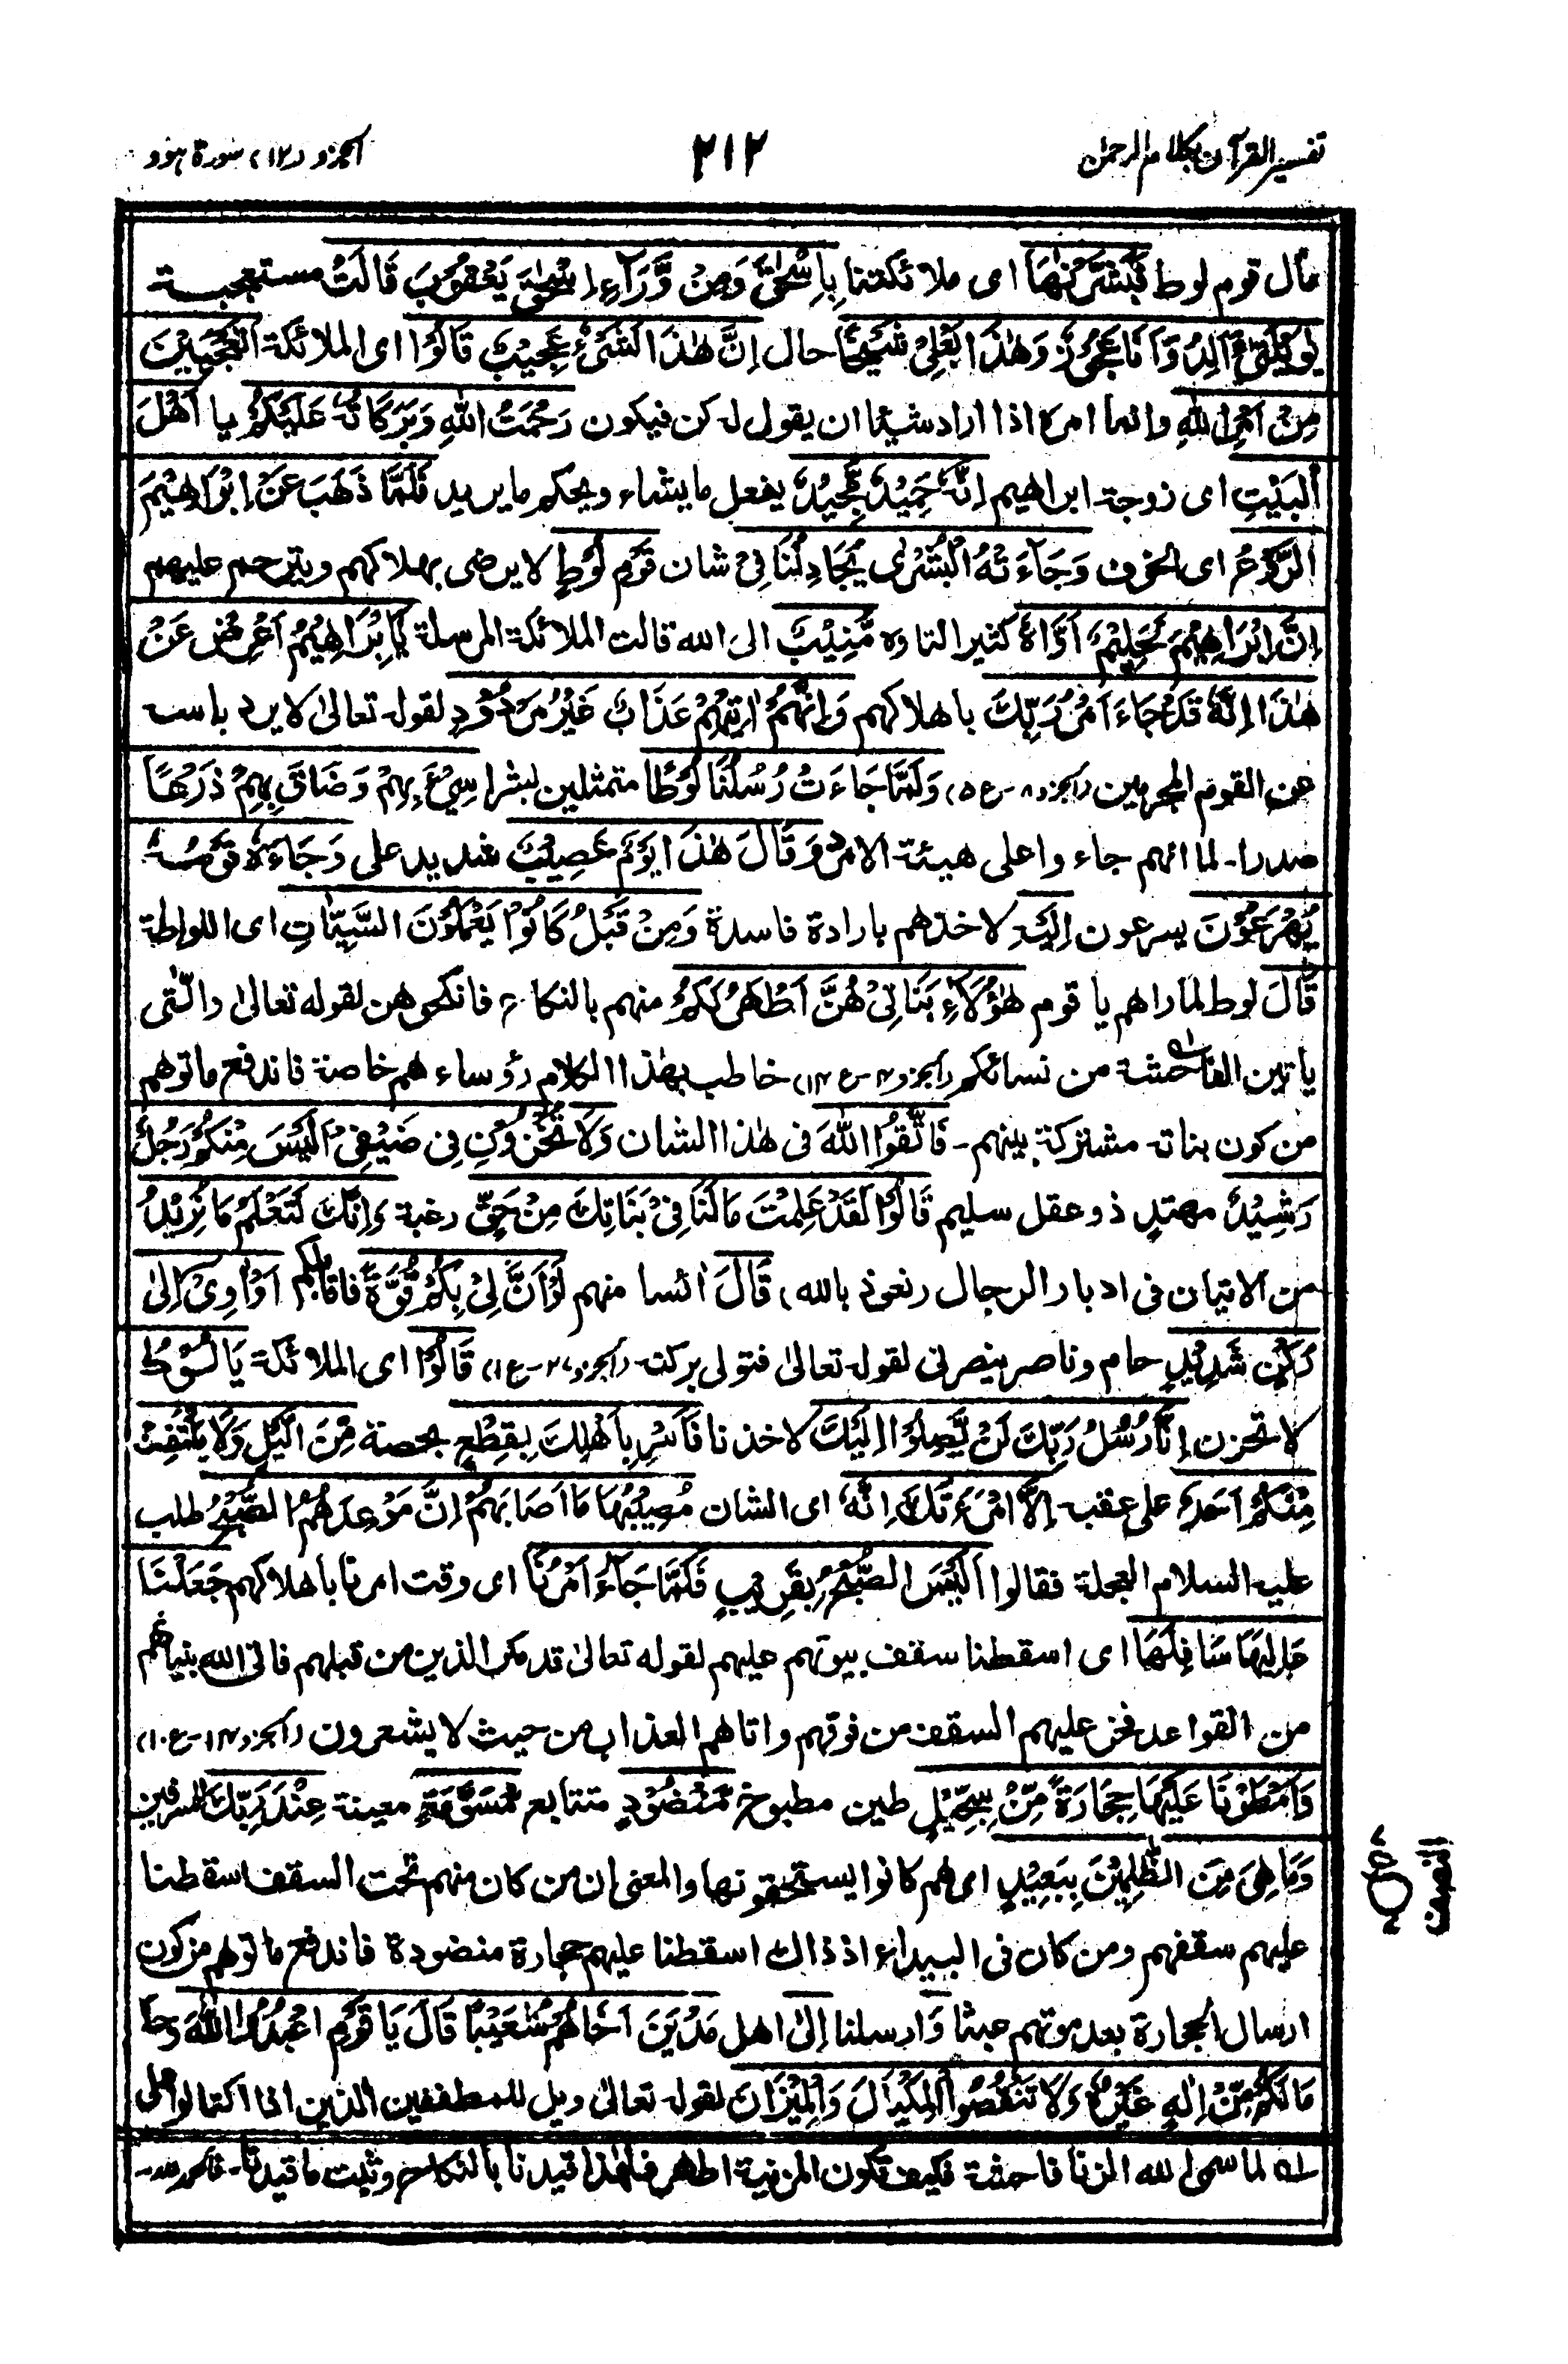 تفسیر القرآن بکلام الرحمن
۲۱۲
الجزو (۱۲) سورة هود
مآل قوم لوط فَبَشَّرْنٰهَا ای ملائكتنا بِاِسْحٰقَ وَمِنْ وَّرَآءِ اِسْحٰقَ يَعْقُوْبَ قَالَتْ مستعجبة
يٰوَيْلَتٰٓى ءَاَلِدُ وَاَنَا عَجُوْزٌ وَهٰذَا بَعْلِىْ شَيْخًا حال اِنَّ هٰذَا لَشَىْءٌ عَجِيْبٌ قَالُوْا ای الملائكة اَتَعْجَبِيْنَ
مِنْ اَمْرِ اللهِ وانما امره اذا اراد شيئا ان يقول له كن فيكون رَحْمَتُ اللهِ وَبَرَكَاتُهٗ عَلَيْكُمْ يا اَهْلَ
الْبَيْتِ ای زوجة ابراهيم اِنَّهٗ حَمِيْدٌ مَّجِيْدٌ يفعل ما يشاء ويحكم ما يريد فَلَمَّا ذَهَبَ عَنْ اِبْرَاهِيْمَ
الرَّوْعُ ای الخوف وَجَآءَتْهُ الْبُشْرٰى يُجَادِلُنَا فِىْ شان قَوْمِ لُوْطٍ لا يرضى بهلاكهم ويترحم عليهم
اِنَّ اِبْرَاهِيْمَ لَحَلِيْمٌ اَوَّاهٌ كثير التاوه مُّنِيْبٌ الى الله قالت الملائكة المرسلة يٰٓاِبْرَاهِيْمُ اَعْرِضْ عَنْ
هٰذَا اِنَّهٗ قَدْ جَاءَ اَمْرُ رَبِّكَ باهلاكهم وَاِنَّهُمْ اٰتِيْهِمْ عَذَابٌ غَيْرُ مَرْدُوْدٍ لقوله تعالىٰ لا يرد باسه
عن القوم المجرمين (الجزو ۸-ع ۵) وَلَمَّا جَاءَتْ رُسُلُنَا لُوْطًا متمثلين بشرا سِىْٓءَ بِهِمْ وَضَاقَ بِهِمْ ذَرْعًا
صدرا۔ لما انهم جاء وا على هيئة الامرد وَقَالَ هٰذَا يَوْمٌ عَصِيْبٌ شديد على وَجَاءَهٗ قَوْمُهٗ
يُهْرَعُوْنَ يسرعون اِلَيْهِ لاخذهم بارادة فاسدة وَمِنْ قَبْلُ كَانُوْا يَعْمَلُوْنَ السَّيِّاٰتِ ای اللواطة
قَالَ لوط لما راهم يا قوم هٰٓؤُلَاءِ بَنَاتِىْ هُنَّ اَطْهَرُ لَكُمْ منهم بالنكاح فانكحوهن لقوله تعالىٰ والّٰتى
ياتين الفاحشة من نسائكم (الجزو ۴-ع ۱۴) خاطب بهٰذا الكلام رؤساء هم خاصة فاندفع ما توهم
من كون بناته مشتركة بينهم۔ فَاتَّقُوا اللهَ فى هٰذا الشان وَلَا تُخْزُوْنِ فِى ضَيْفِىْ اَلَيْسَ مِنْكُمْ رَجُلٌ
رَشِيْدٌ مهتدٍ ذو عقل سليم قَالُوْا لَقَدْ عَلِمْتَ مَا لَنَا فِىْ بَنَاتِكَ مِنْ حَقٍّ رغبة وَاِنَّكَ لَتَعْلَمُ مَا نُرِيْدُ
من الاتيان فى ادبار الرجال (نعوذ بالله) قَالَ ائسا منهم لَوْ اَنَّ لِىْ بِكُمْ قُوَّةً فاقابلكم اَوْ اٰوِىْٓ اِلىٰ
رُكْنٍ شَدِيْدٍ حام وناصر ينصرنى لقوله تعالىٰ فتولى بركنه (الجزو ۲۷-ع ۱) قَالُوْا ای الملائكة يَا لُوْطُ
لا تحزن اِنَّا رُسُلُ رَبِّكَ لَنْ يَّصِلُوْا اِلَيْكَ لاخذنا فَاَسْرِ بِاَهْلِكَ بِقِطْعٍ بحصة مِّنَ الَّيْلِ وَلَا يَلْتَفِتْ
مِنْكُمْ اَحَدٌ على عقبه اِلَّا امْرَاَتَكَ اِنَّهٗ ای الشان مُصِيْبُهَا مَا اَصَابَهُمْ اِنَّ مَوْعِدَهُمُ الصُّبْحُ طلب
عليه السلام العجلة فقالوا اَلَيْسَ الصُّبْحُ بِقَرِيْبٍ فَلَمَّا جَآءَ اَمْرُنَا ای وقت امرنا باهلاكهم جَعَلْنَا
عَالِيَهَا سَافِلَهَا ای اسقطنا سقف بيوتهم عليهم لقوله تعالىٰ قد مكر الذين من قبلهم فاتى الله بنيانهم
من القواعد فخر عليهم السقف من فوقهم واتاهم العذاب من حيث لا يشعرون (الجزو ۱۴-ع ۱۰)
وَاَمْطَرْنَا عَلَيْهَا حِجَارَةً مِّنْ سِجِّيْلٍ طين مطبوخ مَّنْضُوْدٍ متتابع مُّسَوَّمَةً معينة عِنْدَ رَبِّكَ للمسرفين
وَمَا هِىَ مِنَ الظّٰلِمِيْنَ بِبَعِيْدٍ ای هم كانوا يستحقونها والمعنى ان من كان منهم تحت السقف اسقطنا
عليهم سقفهم ومن كان فى البيداء اذ ذاك اسقطنا عليهم حجارة منضودة فاندفع ما توهم من كون
ارسال الحجارة بعد موتهم عبثا وَ ارسلنا اِلىٰ اهل مَدْيَنَ اَخَاهُمْ شُعَيْبًا قَالَ يَا قَوْمِ اعْبُدُوا اللهَ وحده
مَا لَكُمْ مِّنْ اِلٰهٍ غَيْرُهٗ وَلَا تَنْقُصُوا الْمِكْيَالَ وَالْمِيْزَانَ لقوله تعالىٰ ويل للمطففين الذين اذا اكتالوا على
له لما سمى الله الزنا فاحشة فكيف تكون المزنية اطهر فلهٰذا قيدنا بالنكاح وثبت ما قيدنا۔ فالحمد لله۔